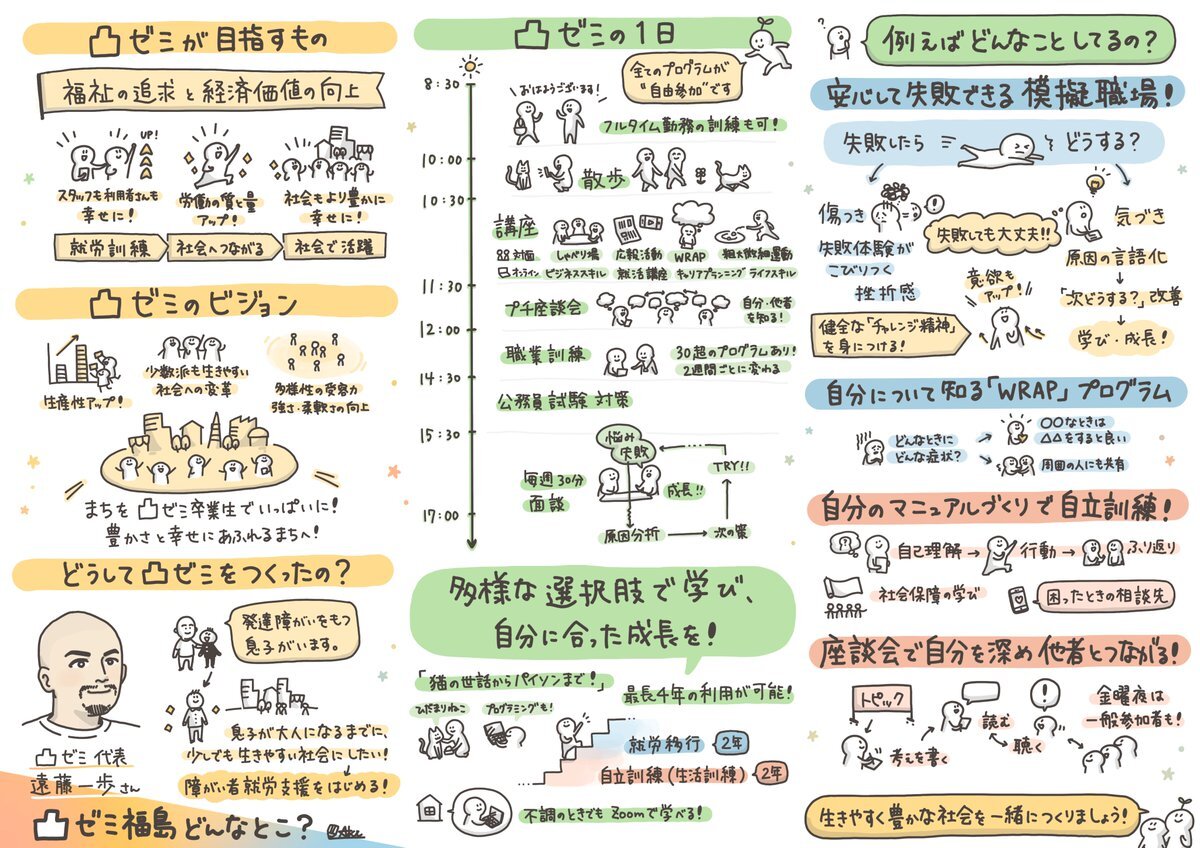 凸ゼミが目指すもの
福祉の追求と経済価値の向上
UP!
スタッフも利用者さんも
幸せに!
労働の質と量
アップ!
社会もより豊かに
幸せに!
就労訓練
社会へつながる
社会で活躍
凸ゼミのビジョン
生産性アップ!
少数派も生きやすい
社会への変革
多様性の受容力
強さ・柔軟さの向上
まちを凸ゼミ卒業生でいっぱいに!
豊かさと幸せにあふれるまちへ!
どうして凸ゼミをつくったの?
発達障がいをもつ
息子がいます。
息子が大人になるまでに、
少しでも生きやすい社会にしたい!
障がい者就労支援をはじめる!
凸ゼミ代表
遠藤一歩さん
凸ゼミ福島どんなとこ?
凸ゼミの1日
全てのプログラムが
"自由参加"です
8:30
おはようございます!
フルタイム勤務の訓練も可!
10:00
散歩
10:30
講座
対面
オンライン
しゃべり場
広報活動
WRAP
粗大微細運動
ビジネススキル
就活講座
キャリアプランニング
ライフスキル
11:30
プチ座談会
自分・他者
を知る!
12:00
職業訓練
30超のプログラムあり!
2週間ごとに変わる
14:30
公務員試験対策
15:30
悩み
失敗
毎週30分
面談
成長!!
TRY!!
原因分析
次の策
17:00
多様な選択肢で学び、
自分に合った成長を!
「猫の世話からパイソンまで!」
ひだまりねこ
プログラミングも!
最長4年の利用が可能!
就労移行
2年
自立訓練(生活訓練)
2年
不調のときでもZoomで学べる!
例えばどんなことしてるの?
安心して失敗できる模擬職場!
失敗したら
どうする?
傷つき
失敗体験が
こびりつく
挫折感
失敗しても大丈夫!!
気づき
原因の言語化
「次どうする?」改善
学び・成長!
意欲も
アップ!
健全な「チャレンジ精神」
を身につける!
自分について知る「WRAP」プログラム
どんなときに
どんな症状?
〇〇なときは
△△をすると良い
周囲の人にも共有
自分のマニュアルづくりで自立訓練!
自己理解
行動
ふり返り
社会保障の学び
困ったときの相談先
座談会で自分を深め他者とつながる!
トピック
考えを書く
読む
聴く
金曜夜は
一般参加者も!
生きやすく豊かな社会を一緒につくりましょう!